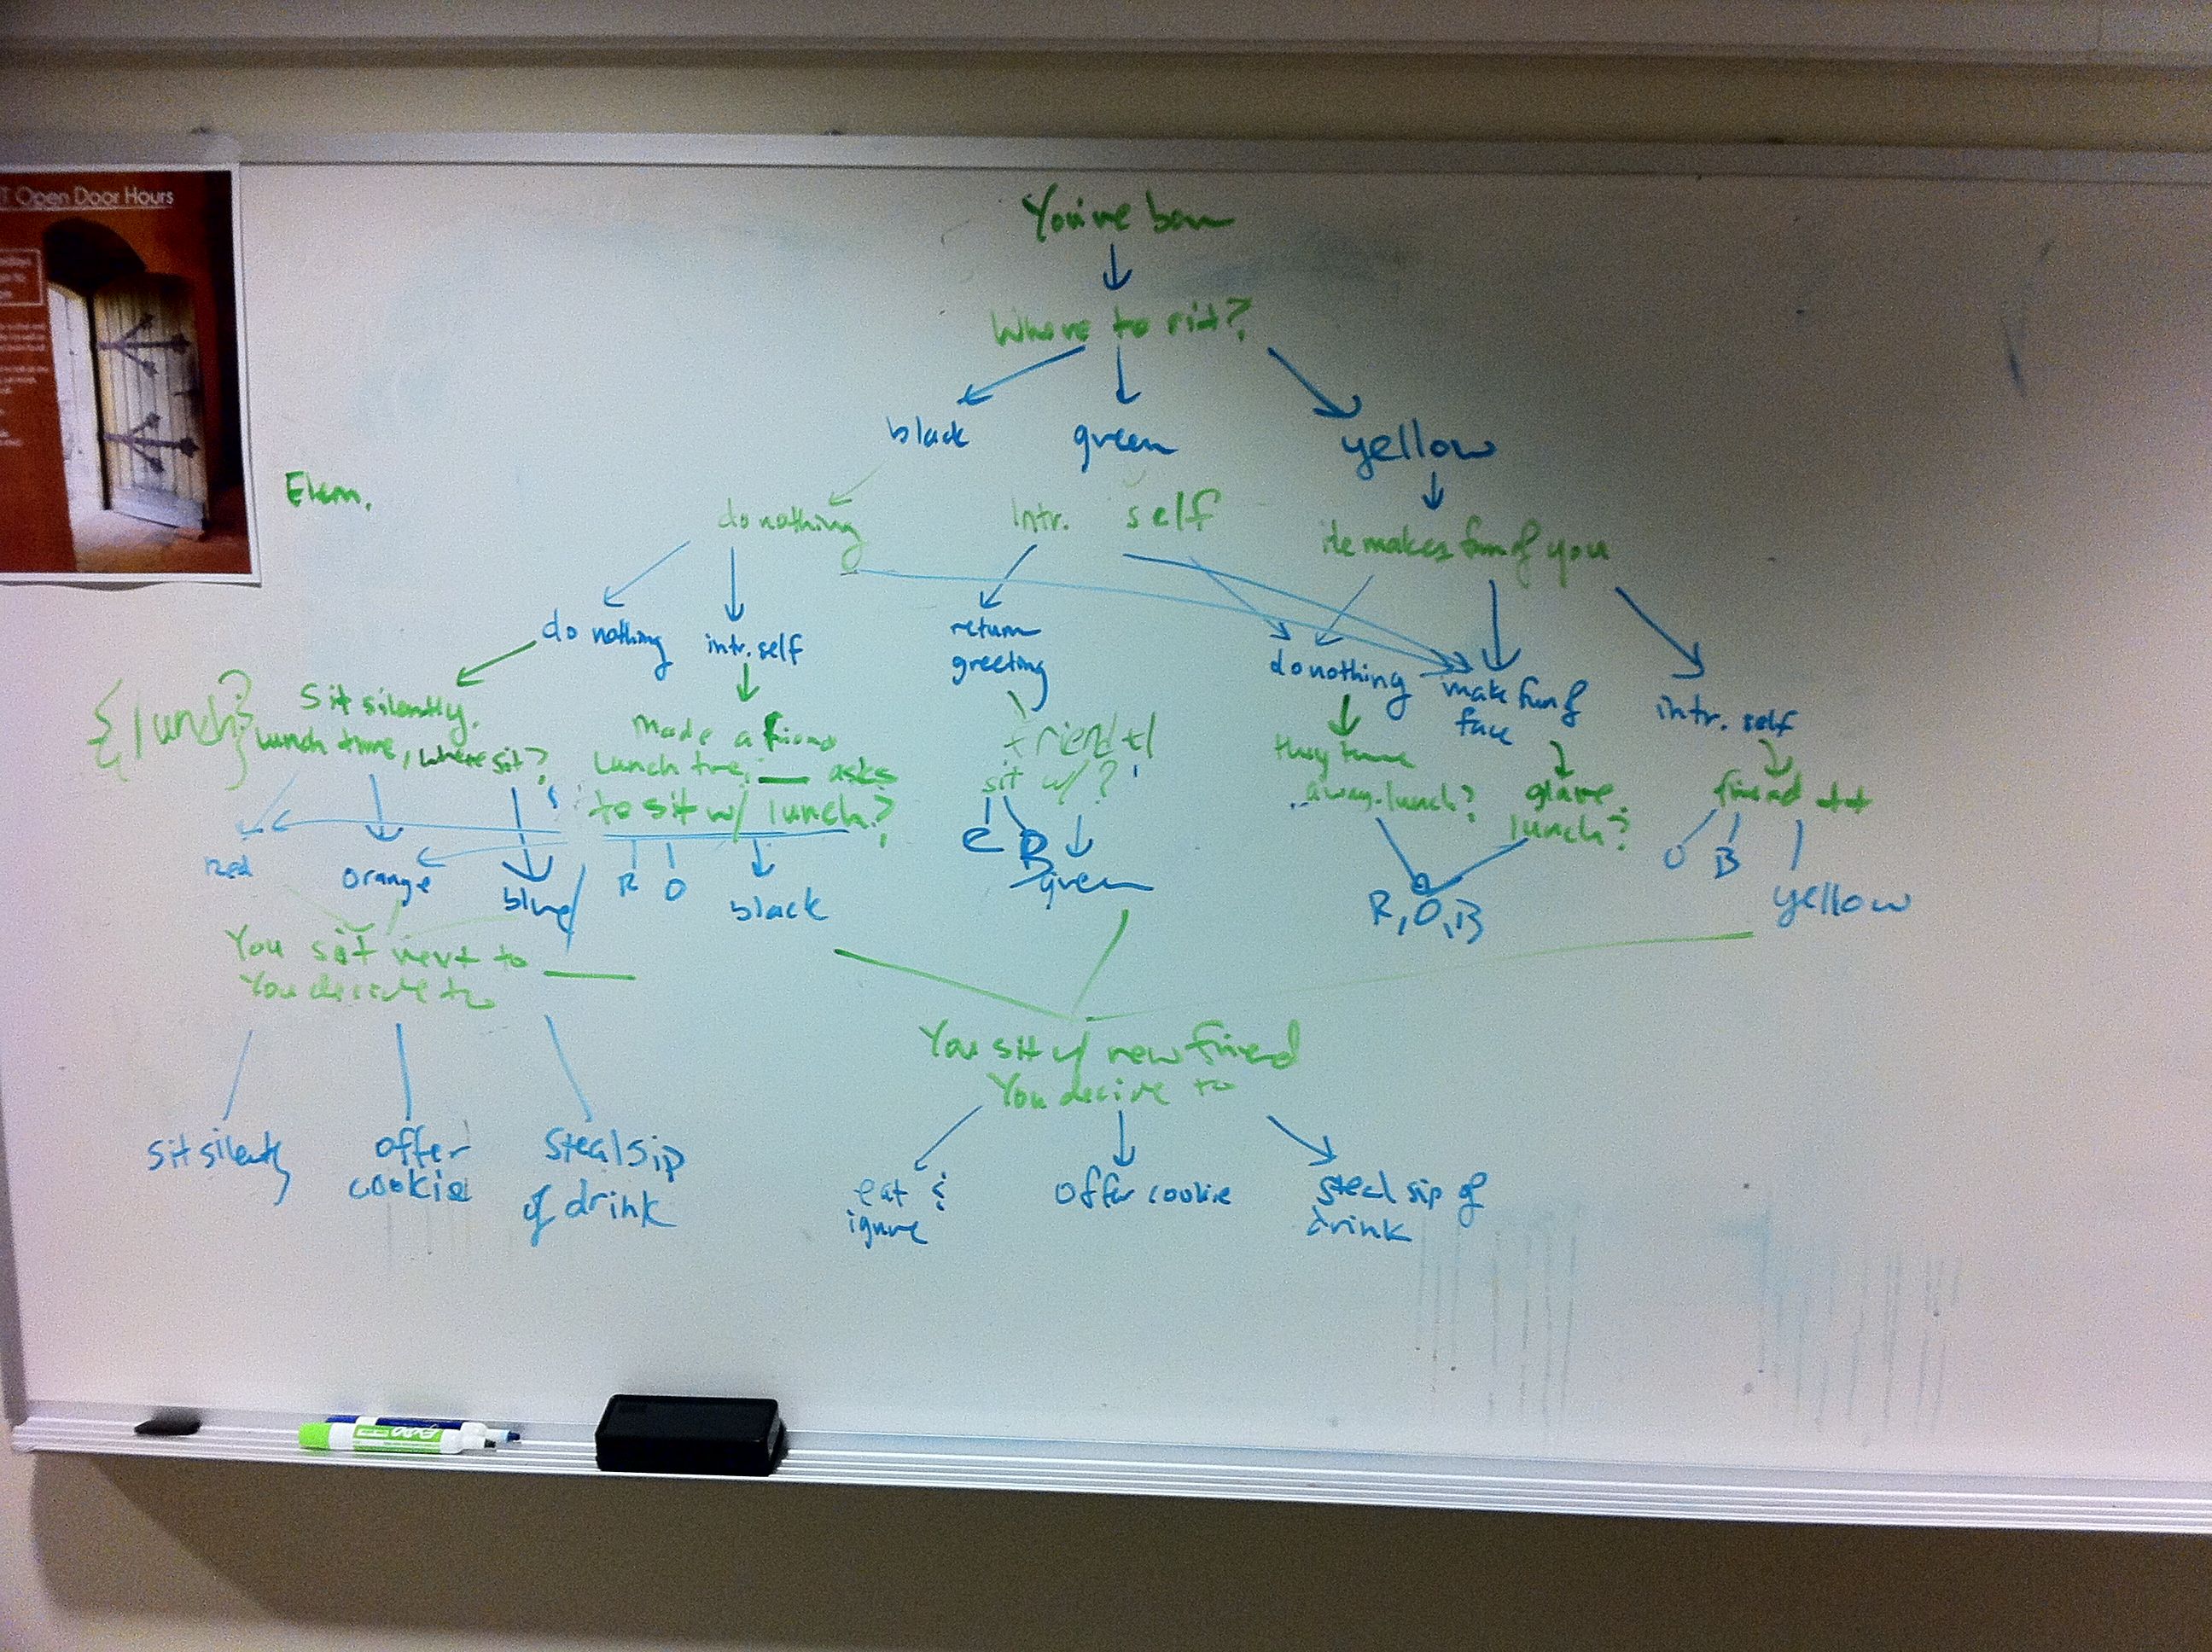 T Open Door Hours
You're born
Where to sit?
black
green
yellow
Elem.
do nothing
Intr. self
He makes fun of you
do nothing
intr. self
return
greeting
do nothing
make fun of
face
intr. self
{lunch?}
Sit silently.
lunch time, where sit?
Made a friend
lunch time, ___ asks
to sit w/ lunch?
friend +1
sit w/?
they turn
away. lunch?
glare.
lunch?
friend ++
Red
orange
blue
R
O
black
B
green
R, O, B
O
B
yellow
You sat next to ___
You decide to
You sit w/ new friend
You decide to
sit silently
offer
cookie
steal sip
of drink
eat &
ignore
offer cookie
steal sip of
drink